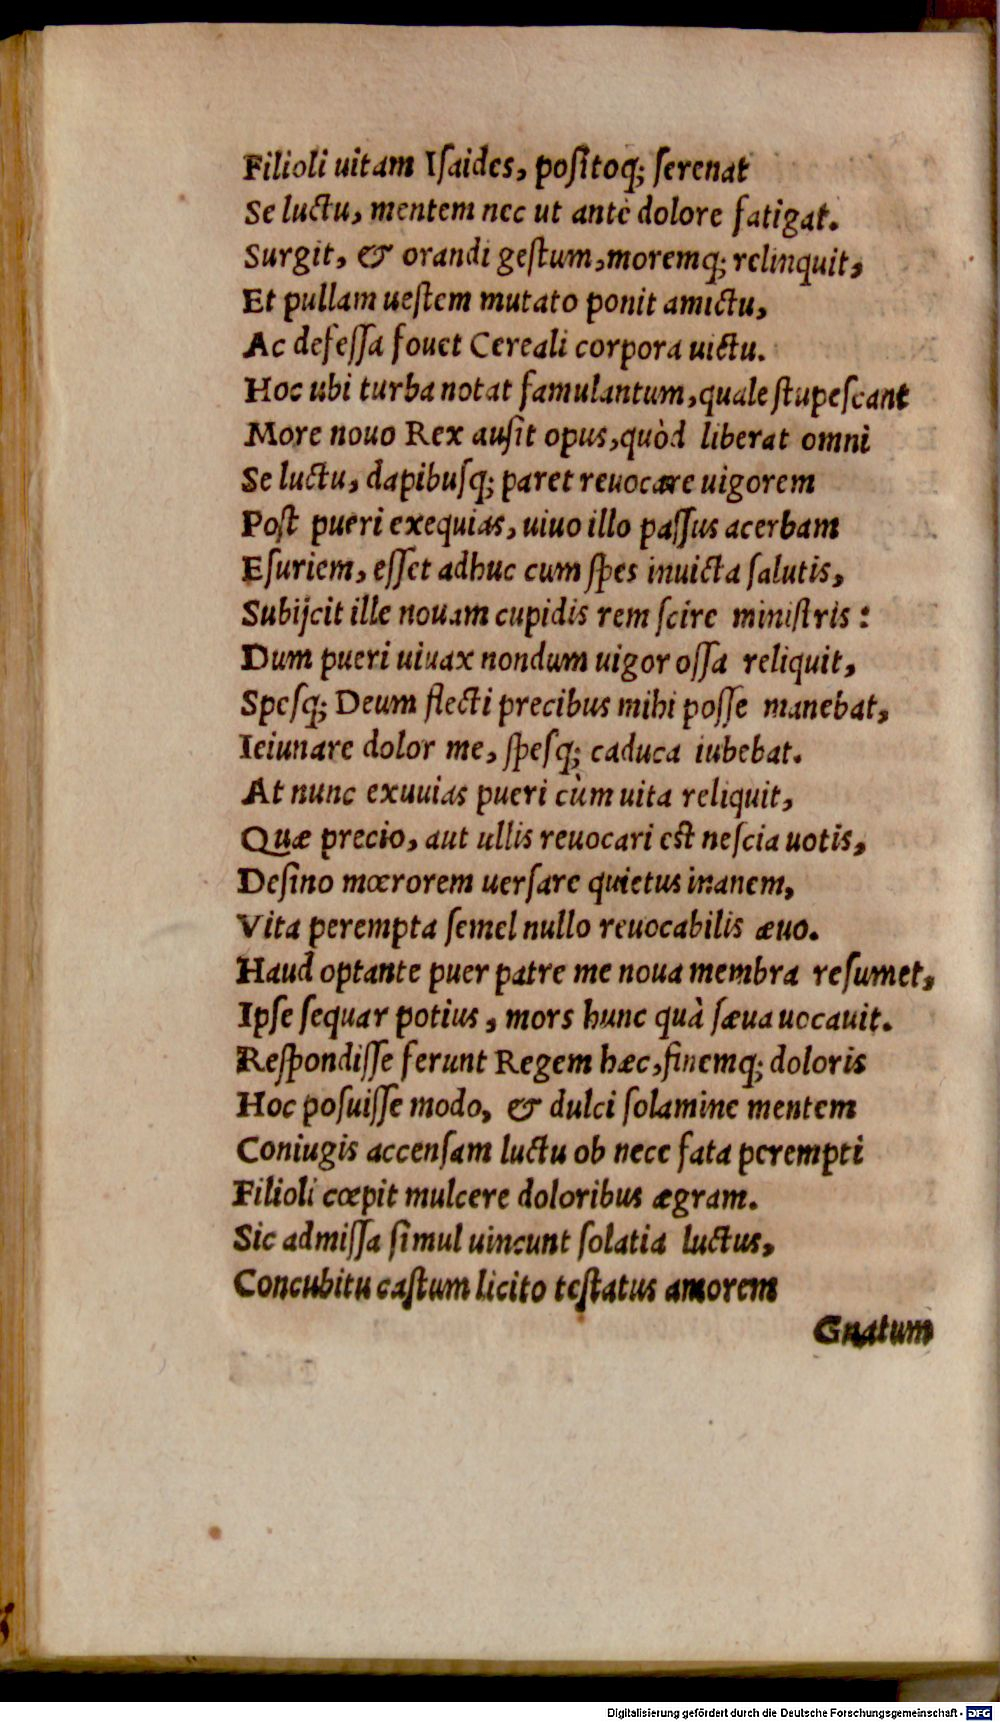 Filioli uitam Iſaides, poſitoq; ſerenat
Se luctu, mentem nec ut ante dolore fatigat.
Surgit, & orandi geſtum, moremq; relinquit,
Et pullam ueſtem mutato ponit amictu,
Ac defeſſa fouet Cereali corpora uictu.
Hoc ubi turba notat famulantum, quale ſtupeſcant
More nouo Rex auſit opus, quòd liberat omni
Se luctu, dapibuſq; paret reuocare uigorem
Poſt pueri exequias, uiuo illo paſſus acerbam
Eſuriem, eſſet adhuc cum ſpes inuicta ſalutis,
Subijcit ille nouam cupidis rem ſcire miniſtris :
Dum pueri uiuax nondum uigor oſſa reliquit,
Speſq; Deum flecti precibus mihi poſſe manebat,
Ieiunare dolor me, ſpeſq; caduca iubebat.
At nunc exuuias pueri cùm uita reliquit,
Quæ precio, aut ullis reuocari eſt neſcia uotis,
Deſino mœrorem uerſare quietus inanem,
Vita perempta ſemel nullo reuocabilis æuo.
Haud optante puer patre me noua membra reſumet,
Ipſe ſequar potius, mors hunc quà ſæua uocauit.
Reſpondiſſe ferunt Regem hæc, finemq; doloris
Hoc poſuiſſe modo, & dulci ſolamine mentem
Coniugis accenſam luctu ob nece fata perempti
Filioli cœpit mulcere doloribus ægram.
Sic admiſſa ſimul uincunt ſolatia luctus,
Concubitu caſtum licito teſtatus amorem
Gnatum
Digitalisierung gefördert durch die Deutsche Forschungsgemeinschaft - DFG